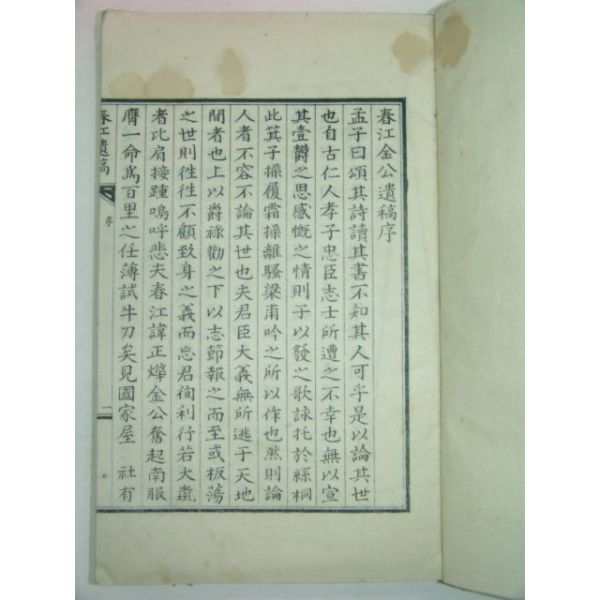 春江金公遺稿序
孟子曰頌其詩讀其書不知其人可乎是以論其世
也自古仁人孝子忠臣志士所遭之不幸也無以宣
其壹鬱之思感慨之情則于以發之歌詠托於絲桐
此箕子操履霜操離騷梁甫吟之所以作也然則論
人者不容不論其世也夫君臣大義無所逃于天地
間者也上以爵祿勸之下以志節報之而至或板蕩
之世則徃徃不顧致身之義而忘君徇利行若犬彘
者比肩接踵嗚呼悲夫春江諱正燁金公奮起南服
膺一命爲百里之任薄試牛刀矣見國家屋 社有
春江遺稿
序
一